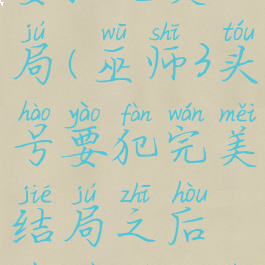 jú wū shī tóu
局(巫师3头
hào yào fàn wán měi
号要犯完美
jié jú zhī hòu
结局之后